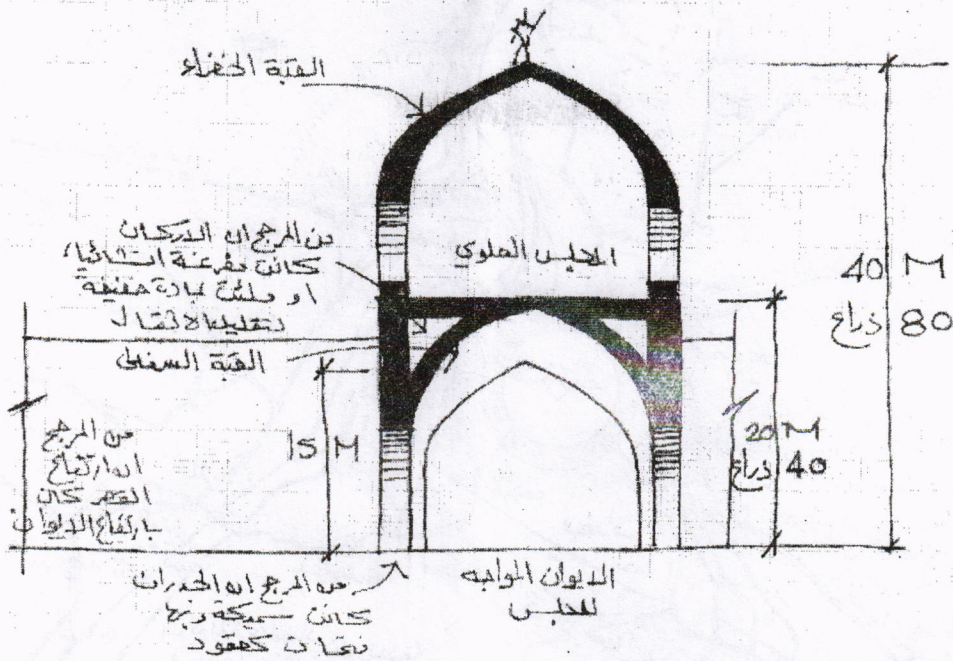 القبة الخضراء
من المرجح ان الاركان
كانت مفرغة انشائياً
او ملئت بمادة خفيفة
لتقليل الاثقال
القبة السفلى
المجلس العلوي
40 M
80 ذراع
20 M
40 ذراع
15 M
من المرجح
ان ارتفاع
القصر كان
بارتفاع الايوان
من المرجح ان الجدران
كانت سميكة وبها
فتحات كعقود
الايوان المواجه
للمجلس